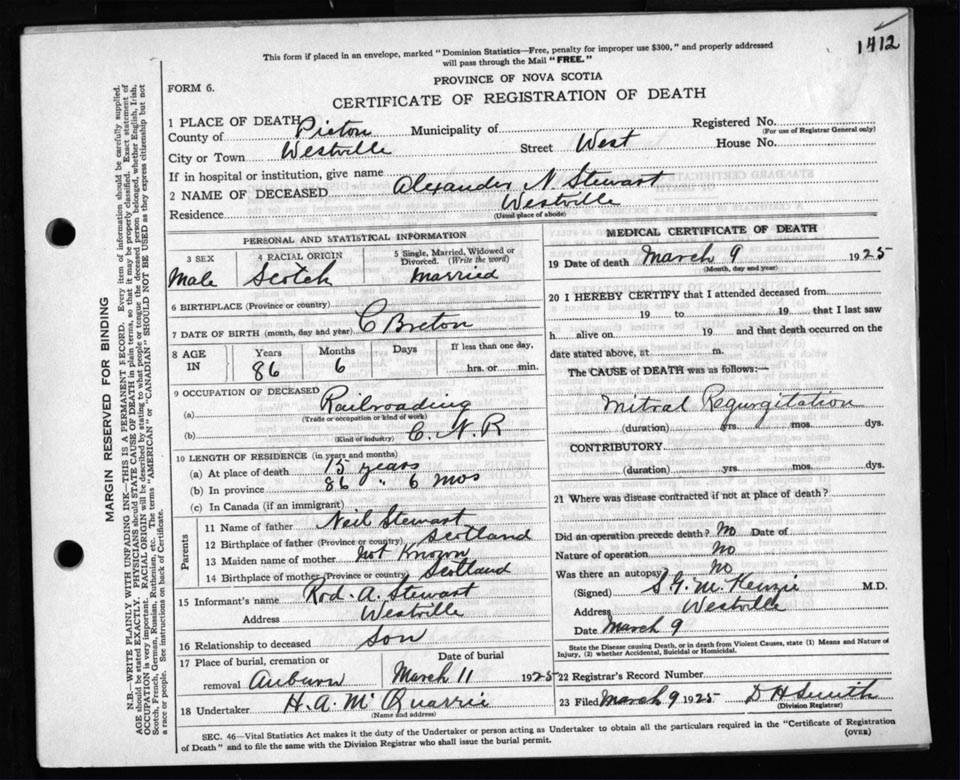 1412
This form if placed in an envelope, marked "Dominion Statistics—Free, penalty for improper use $300," and properly addressed
will pass through the Mail "FREE."
PROVINCE OF NOVA SCOTIA
FORM 6.
CERTIFICATE OF REGISTRATION OF DEATH
1 PLACE OF DEATH
County of Pictou Municipality of Registered No.
(For use of Registrar General only)
City or Town Westville Street West House No.
If in hospital or institution, give name
2 NAME OF DECEASED Alexander N. Stewart
Residence Westville
(Usual place of abode)
PERSONAL AND STATISTICAL INFORMATION
3 SEX 4 RACIAL ORIGIN 5 Single, Married, Widowed or
Divorced. (Write the word)
Male Scotch Married
6 BIRTHPLACE (Province or country) C Breton
7 DATE OF BIRTH (month, day and year)
8 AGE IN Years Months Days If less than one day,
86 6 hrs. or min.
9 OCCUPATION OF DECEASED
(a) Railroading
(Trade or occupation or kind of work)
(b) C. N. R
(Kind of industry)
10 LENGTH OF RESIDENCE (in years and months)
(a) At place of death 15 years
(b) In province 86 " 6 mos
(c) In Canada (if an immigrant)
Parents
11 Name of father Neil Stewart
12 Birthplace of father (Province or country) Scotland
13 Maiden name of mother Not Known
14 Birthplace of mother (Province or country) Scotland
15 Informant's name Rod. A. Stewart
Address Westville
16 Relationship to deceased Son
17 Place of burial, cremation or Date of burial
removal Auburn March 11 1925
18 Undertaker H. A. McQuarrie
(Name and address)
MEDICAL CERTIFICATE OF DEATH
19 Date of death March 9 1925
(Month, day and year)
20 I HEREBY CERTIFY that I attended deceased from
19 to 19 that I last saw
h alive on 19 and that death occurred on the
date stated above, at m.
The CAUSE of DEATH was as follows:—
Mitral Regurgitation
(duration) yrs. mos. dys.
CONTRIBUTORY
(duration) yrs. mos. dys.
21 Where was disease contracted if not at place of death?
Did an operation precede death? No Date of
Nature of operation No
Was there an autopsy? No
(Signed) S. G. McKenzie M.D.
Address Westville
Date March 9
State the Disease causing Death, or in death from Violent Causes, state (1) Means and Nature of
Injury, (2) whether Accidental, Suicidal or Homicidal.
22 Registrar's Record Number
23 Filed March 9 1925 D H Smith
(Division Registrar)
SEC. 46—Vital Statistics Act makes it the duty of the Undertaker or person acting as Undertaker to obtain all the particulars required in the "Certificate of Registration
of Death" and to file the same with the Division Registrar who shall issue the burial permit.
(OVER)
MARGIN RESERVED FOR BINDING
N.B.—WRITE PLAINLY WITH UNFADING INK—THIS IS A PERMANENT RECORD. Every item of information should be carefully supplied.
AGE should be stated EXACTLY. PHYSICIANS should STATE CAUSE OF DEATH in plain terms, so that it may be properly classified. Exact statement of
OCCUPATION is very important. RACIAL ORIGIN will be described by stating to what people or tongue the deceased person belonged, whether English, Irish,
Scotch, French, German, Russian, Ruthenian, etc. The terms "AMERICAN" or "CANADIAN" SHOULD NOT BE USED as they express citizenship but not
a race or people. See instructions on back of Certificate.